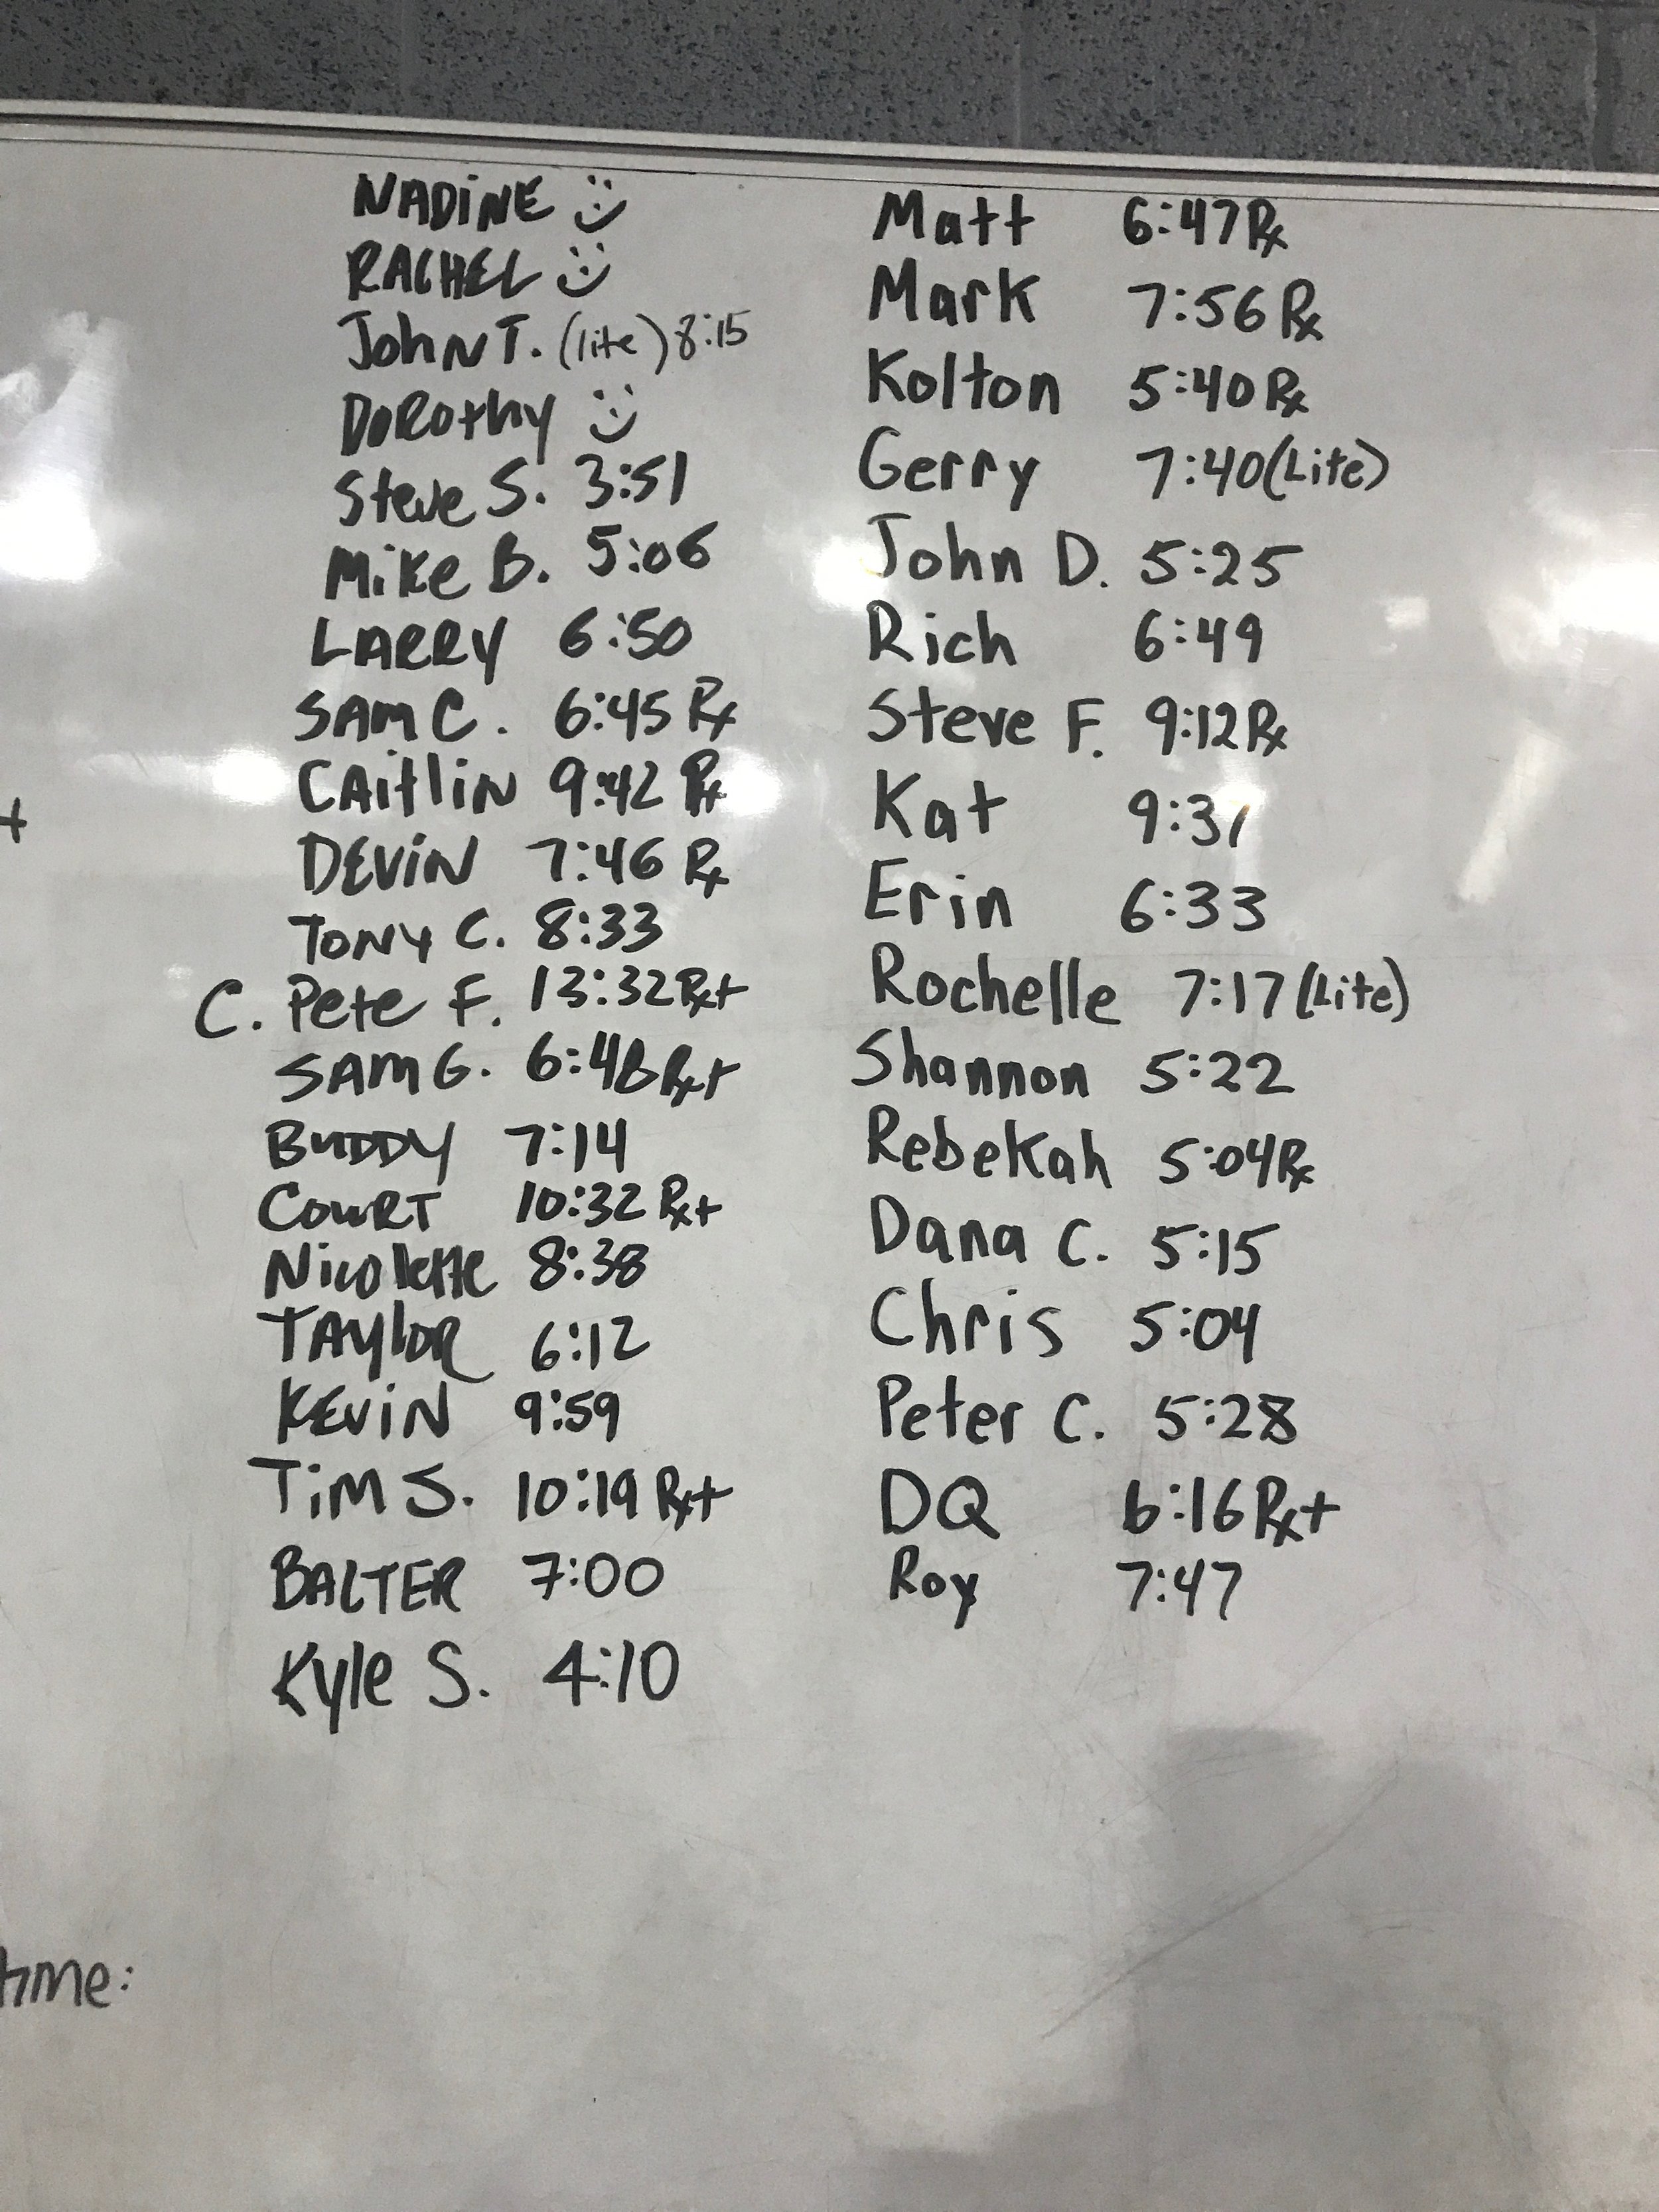 NADiNE :)
RACHEL :)
JohN T. (lite) 8:15
DoRothy :)
Steve S. 3:51
Mike B. 5:06
LARRY 6:50
SAM C. 6:45 Rx
CAitliN 9:42 Rx
DEViN 7:46 Rx
TONY C. 8:33
C. Pete F. 13:32 Rx+
SAM G. 6:48 Rx+
BUDDY 7:14
COURT 10:32 Rx+
Nicolette 8:38
TAylOR 6:12
KEViN 9:59
TiM S. 10:19 Rx+
BALTER 7:00
Kyle S. 4:10
Matt 6:47 Rx
Mark 7:56 Rx
Kolton 5:40 Rx
Gerry 7:40 (Lite)
John D. 5:25
Rich 6:49
Steve F. 9:12 Rx
Kat 9:31
Erin 6:33
Rochelle 7:17 (Lite)
Shannon 5:22
Rebekah 5:04 Rx
Dana C. 5:15
Chris 5:04
Peter C. 5:28
DQ 6:16 Rx+
Roy 7:47
+
time: